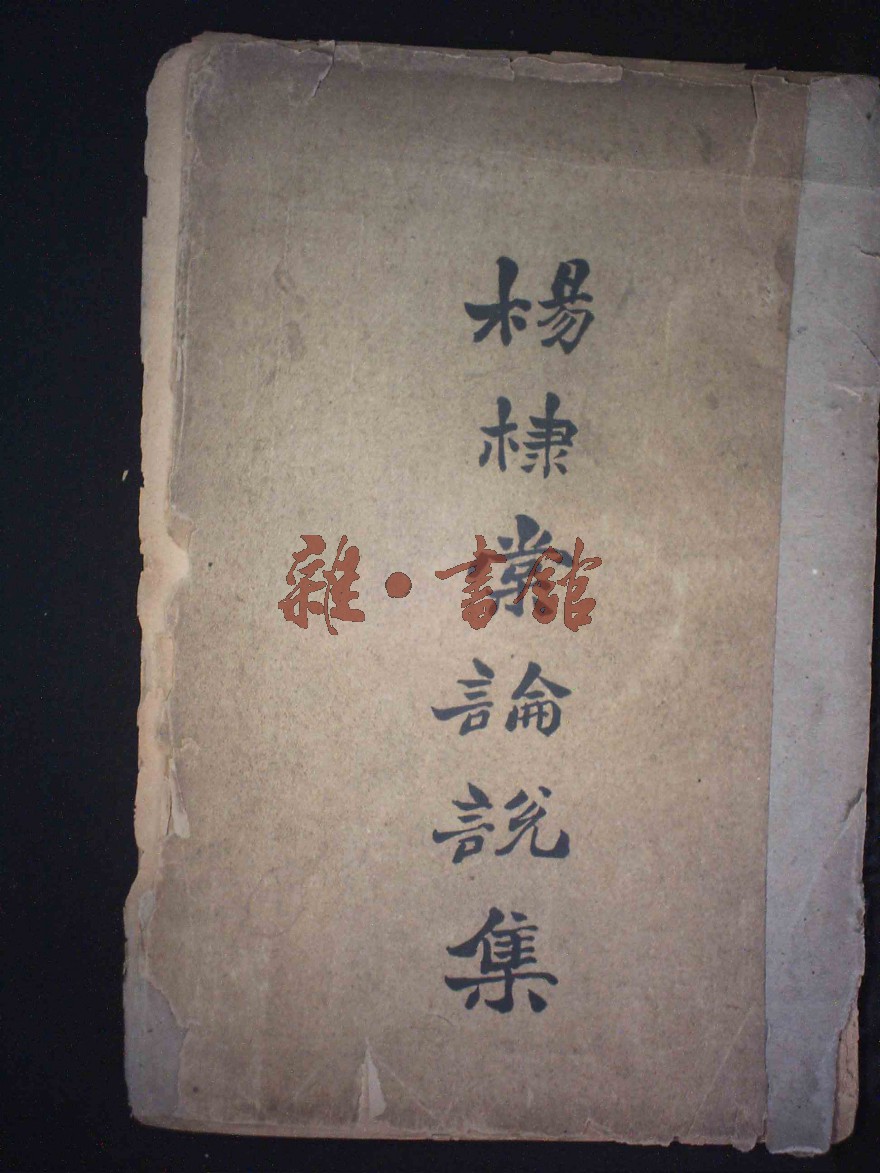 楊棣棠論說集
雜·書館